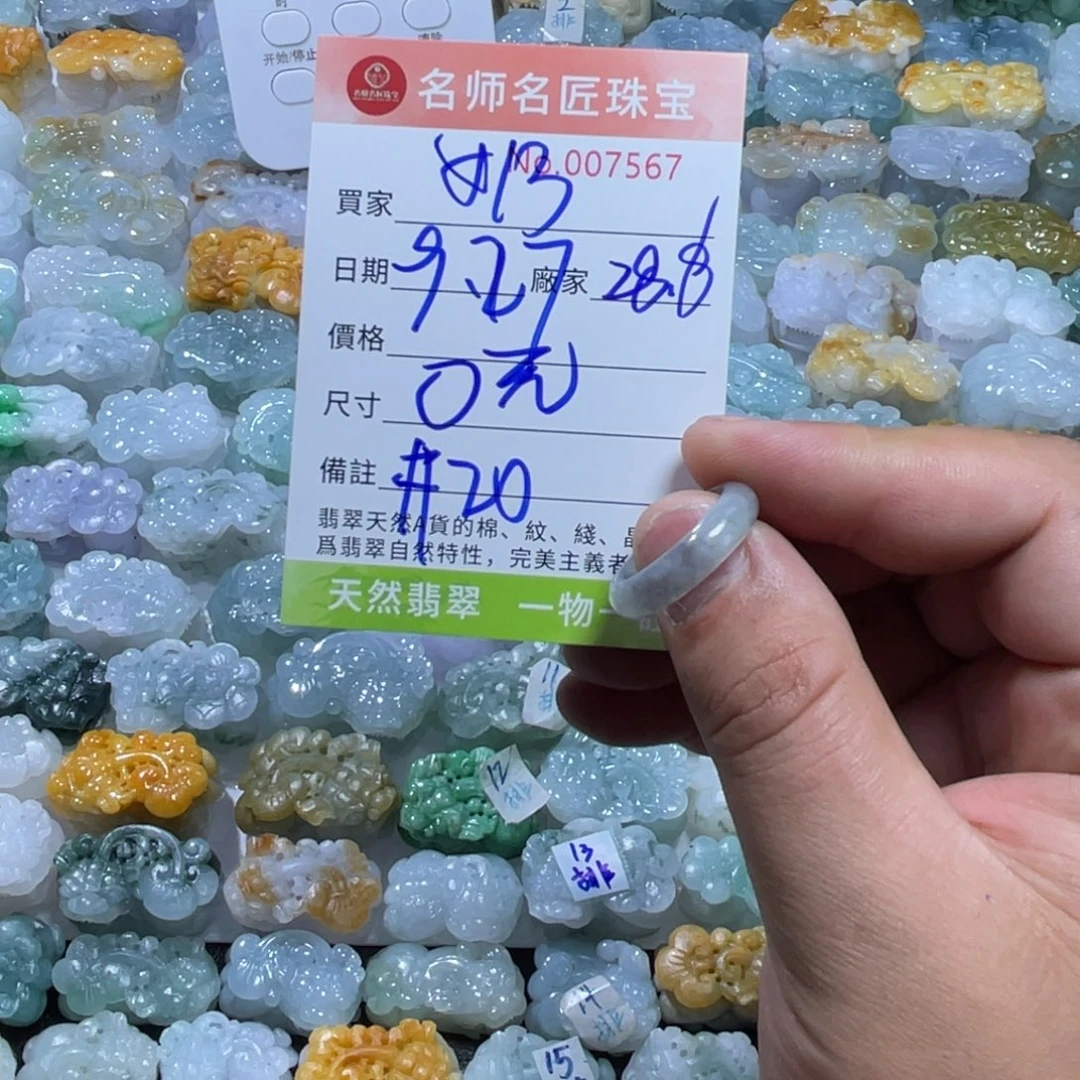 2
排
开始/停止
清除
名师名匠珠宝
No.007567
買家
13
日期 9.27 廠家 28.8
價格
0元
尺寸
備註 #20
翡翠天然A貨的棉、紋、綫、晶
爲翡翠自然特性，完美主義者
天然翡翠 一物一證
11
排
12
排
13
排
14
排
15